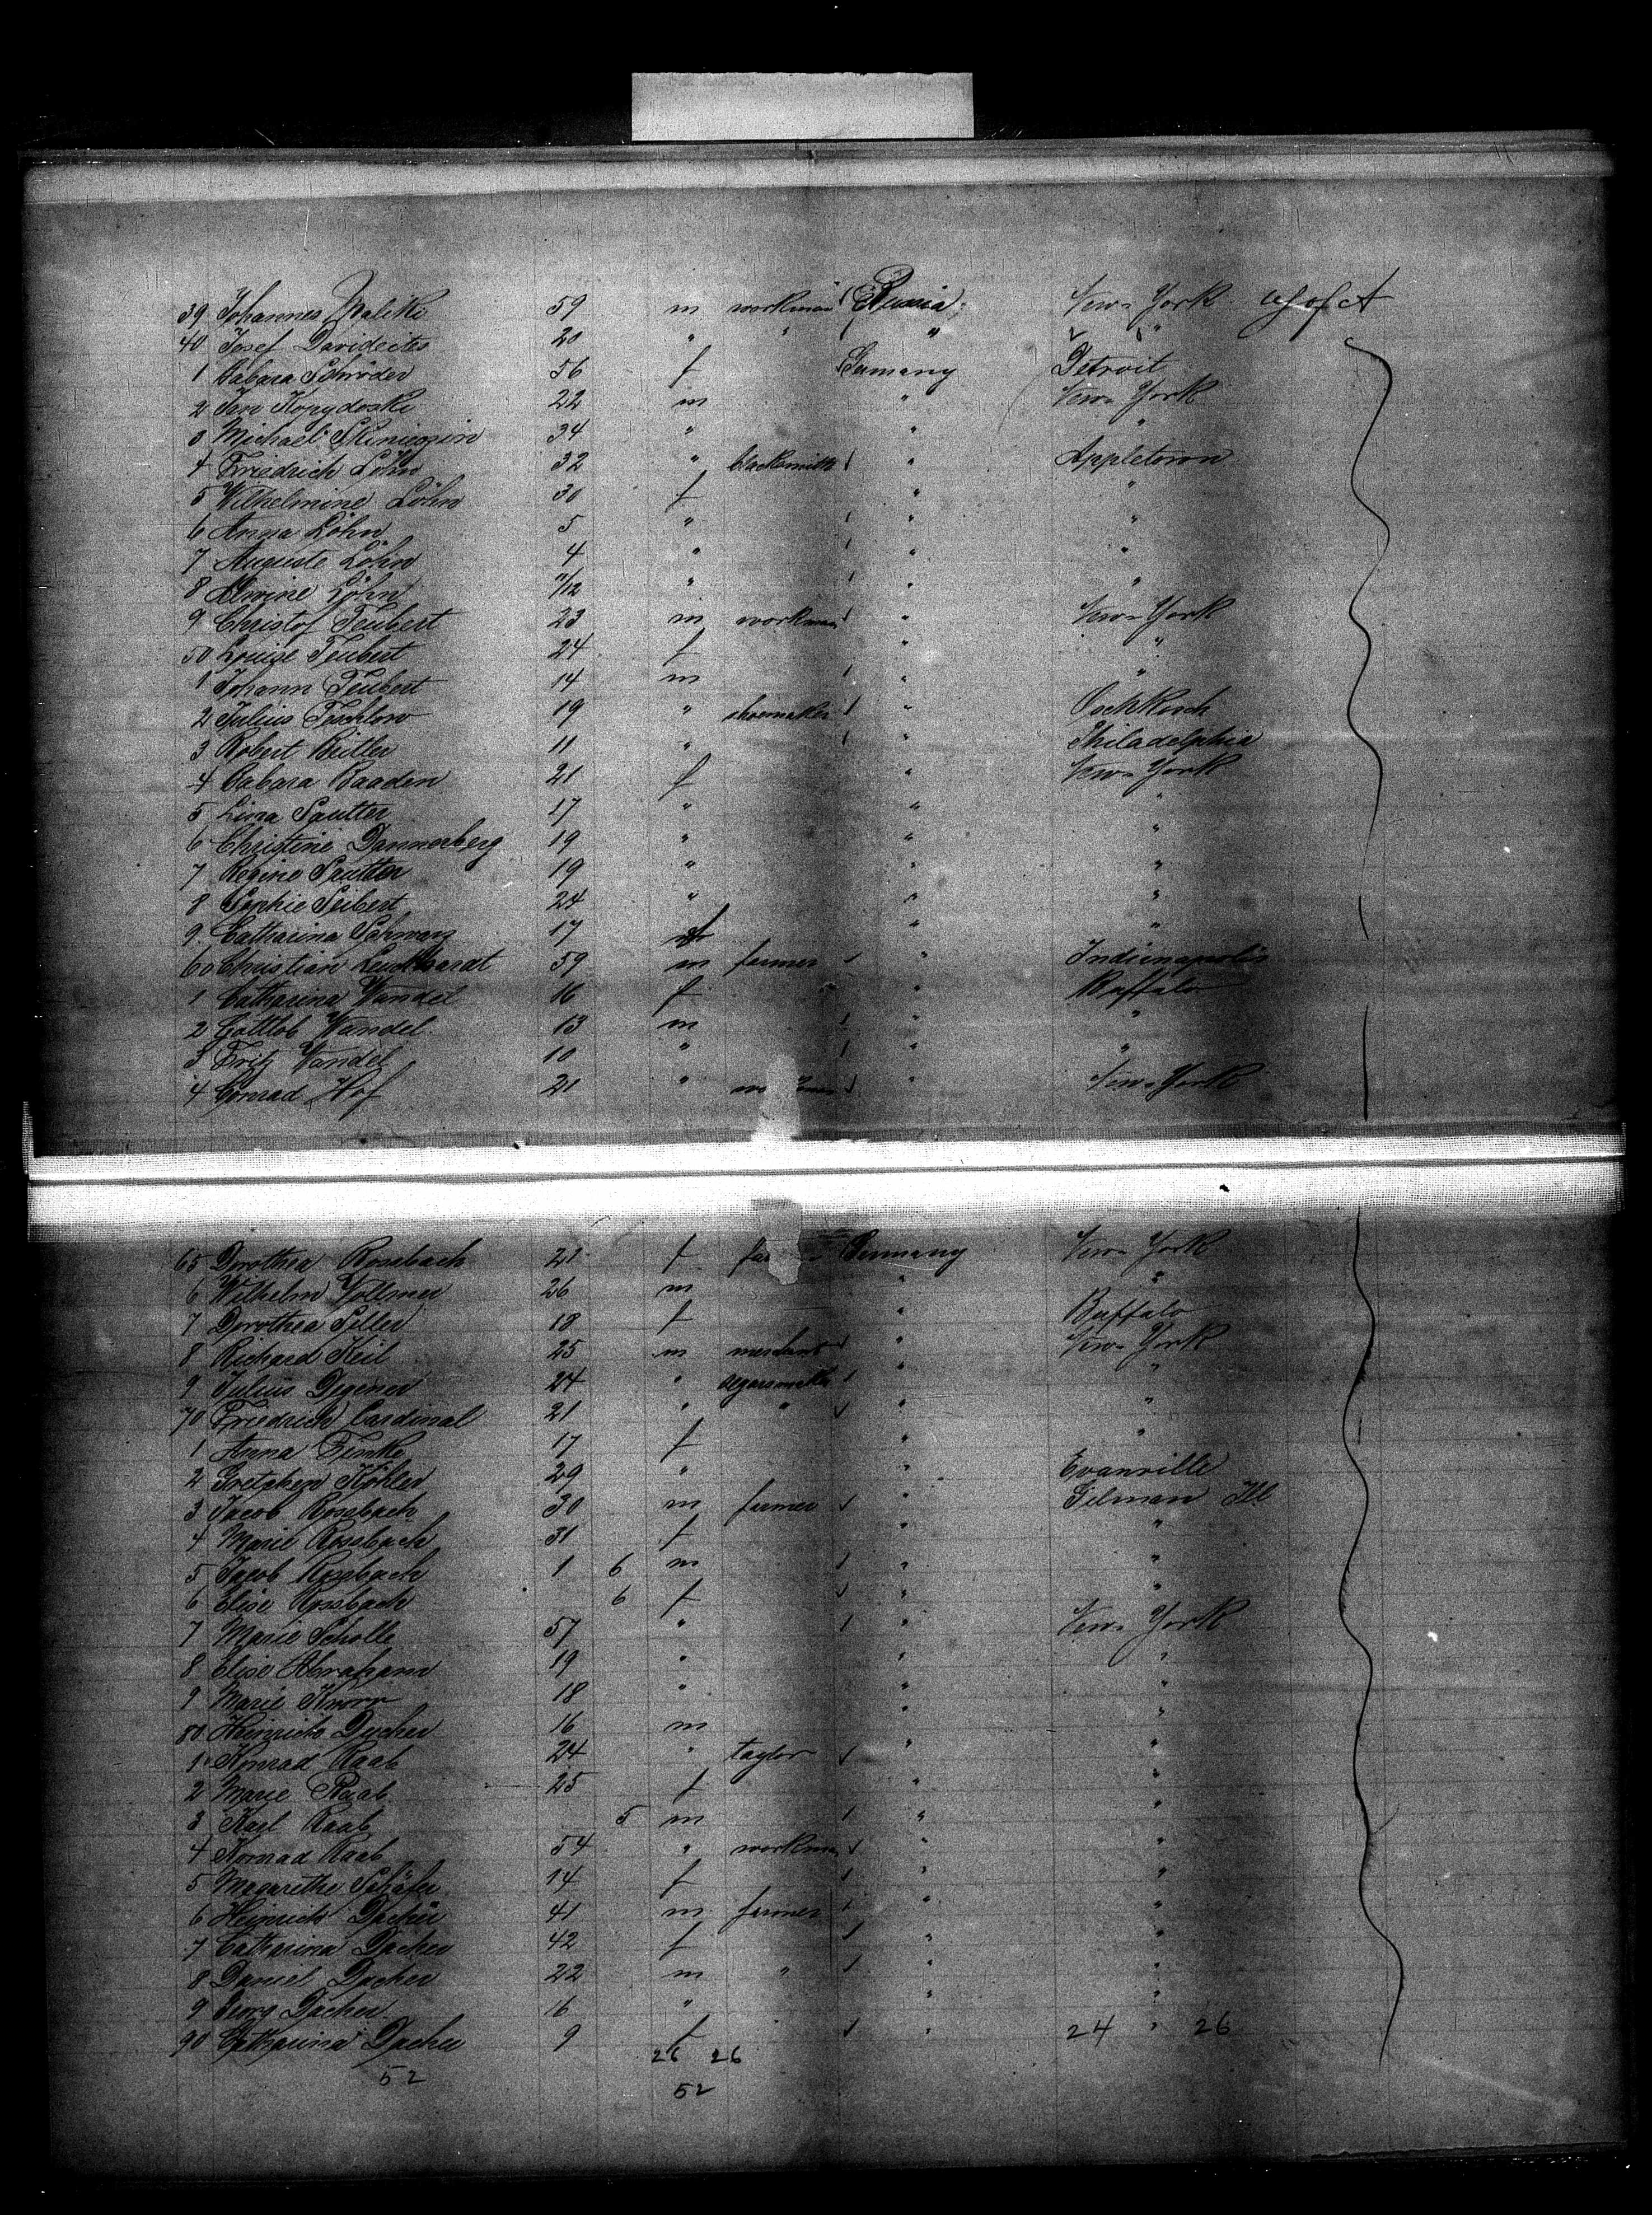 39 Johannes Maliki 59 m workman Russia New-York U S of A
40 Josef Davideites 20 " " " "
1 Babara Schröder 56 f Germany Detroit
2 Jan Kopydoski 22 m " New-York
3 Michael 34 " " "
4 Friedrich Löhn 32 " blacksmith " Appletown
5 Wilhelmine Löhn 30 f " "
6 Anna Löhn 5 " " "
7 Auguste Löhn 4 " " "
8 Alwine Löhn 11/12 " " "
9 Christof Teubert 23 m workman " New-York
50 Louise Teubert 24 f " "
1 Johann Teubert 14 m " "
2 Julius Teschlow 19 " shoemaker " Oschkosch
3 Robert Bütler 11 " " Philadelphia
4 Babara Baaden 21 f " New-York
5 Lina Sautter 17 " " "
6 Christine Dannerberg 19 " " "
7 Regine Sautter 19 " " "
8 Sophie Seibert 24 " " "
9 Catharina Schwarz 17 f " "
60 Christian Leuckhardt 59 m farmer " Indianapolis
1 Catharina Wandel 16 f " Buffalo
2 Gottlob Wandel 13 m " "
3 Fritz Wandel 10 " " "
4 Conrad Hof 21 " " New-York
65 Dorothea Rossbach 21 f Germany New-York
6 Wilhelm Vollmer 26 m " "
7 Dorothea Siller 18 f " Buffalo
8 Richard Keil 25 m " New-York
9 Julius Degener 24 " segarsmaker " "
70 Friedrich Cardinal 21 " " " "
1 Anna Finke 17 f " "
2 Gretchen Köhler 29 " " Evanville
3 Jacob Rossbach 30 m farmer " Gilman Ill
4 Marie Rossbach 31 f " "
5 Jacob Rossbach 1 6 m " "
6 Elise Rossbach 6 f " "
7 Marie Scholle 57 " " New-York
8 Elise Abraham 19 " " "
9 Marie Knorr 18 " " "
80 Heinrich Ducher 16 m " "
1 Konrad Raab 24 " taylor " "
2 Marie Raab 25 f " "
3 Karl Raab 5 m " "
4 Konrad Raab 54 " workman " "
5 Magarethe Schäfer 14 f " "
6 Heinrich Dacher 41 m farmer " "
7 Catharina Dacher 42 f " "
8 Daniel Dacher 22 m " " "
9 Georg Dacher 16 " " "
90 Catharina Dacher 9 f " 24 " 26
26 26
52 52